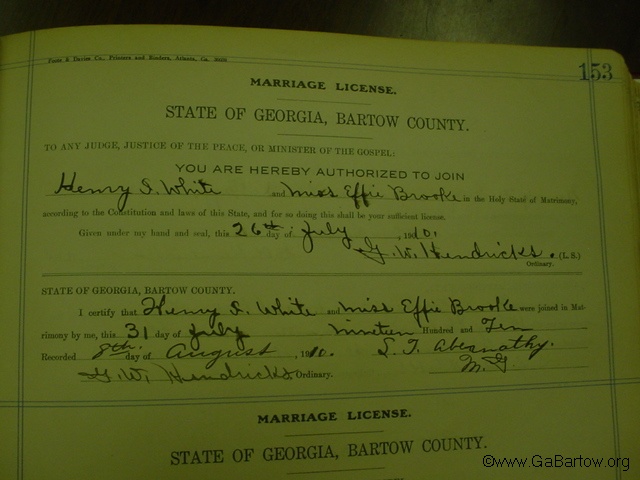 Foote & Davies Co., Printers and Binders, Atlanta, Ga.
153
MARRIAGE LICENSE.
STATE OF GEORGIA, BARTOW COUNTY.
TO ANY JUDGE, JUSTICE OF THE PEACE, OR MINISTER OF THE GOSPEL:
YOU ARE HEREBY AUTHORIZED TO JOIN
Henry S. White and Miss Effie Brooke in the Holy State of Matrimony,
according to the Constitution and laws of this State, and for so doing this shall be your sufficient license.
Given under my hand and seal, this 26th day of July, 1910.
G. W. Hendricks. (L. S.)
Ordinary.
STATE OF GEORGIA, BARTOW COUNTY.
I certify that Henry S. White and Miss Effie Brooke were joined in Mat-
rimony by me, this 31 day of July nineteen Hundred and Ten
Recorded 8th. day of August, 1910. S. T. Abernathy.
G. W. Hendricks Ordinary. M. G.
MARRIAGE LICENSE.
STATE OF GEORGIA, BARTOW COUNTY.
©www.GaBartow.org